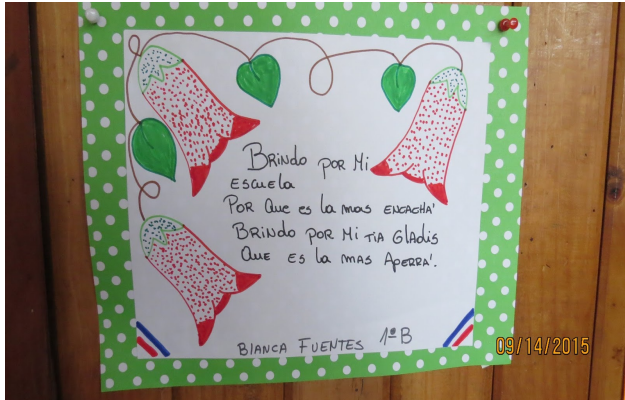 Brindo por Mi
escuela
Por que es la mas encacha'
Brindo por Mi tia Gladis
Que es la mas Aperra'.
Bianca Fuentes 1º B
09/14/2015